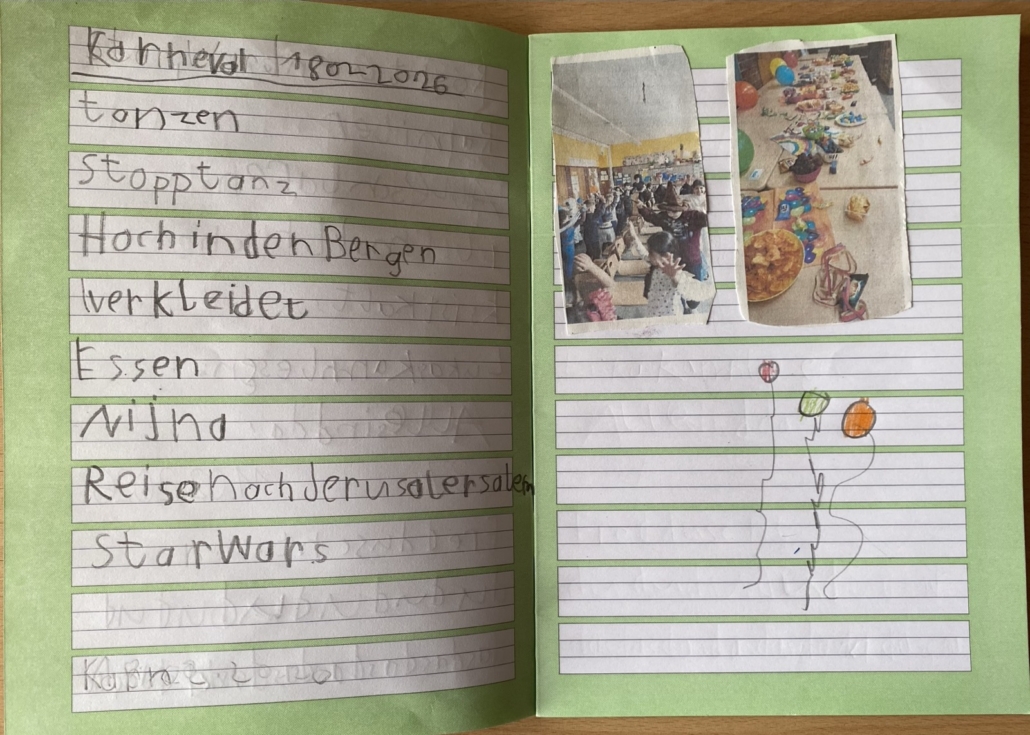 Karneval 18022026
tanzen
Stopptanz
Hoch in den Bergen
verkleidet
Essen
Nijna
Reise nach Jerusalersalem
Star Wars